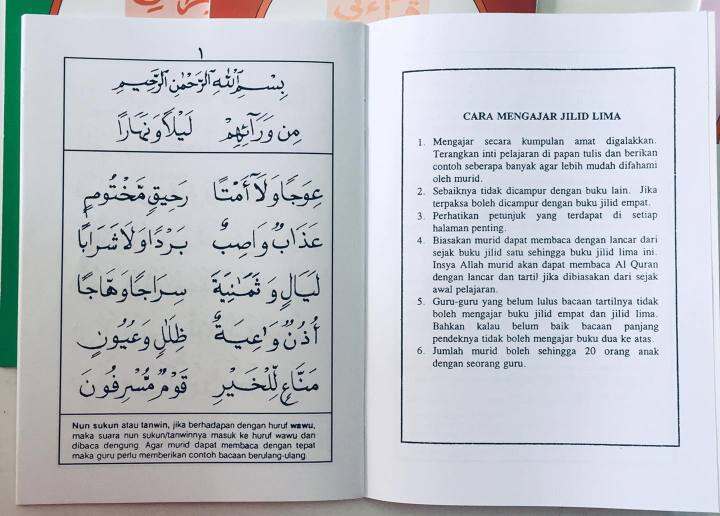 ١
بِسْمِ ٱللّٰهِ ٱلرَّحْمٰنِ ٱلرَّحِيمِ
مِن وَرَآئِهِمْ لَيْلًا وَنَهَارًا
عِوَجًا وَلَآ أَمْتًا رَحِيقٍ مَّخْتُومٍ
عَذَابٌ وَاصِبٌ بَرْدًا وَلَا شَرَابًا
لَيَالٍ وَثَمٰنِيَةَ سِرَاجًا وَهَّاجًا
أُذُنٌ وَٰعِيَةٌ ظِلَٰلٍ وَعُيُونٍ
مَنَّاعٍ لِّلْخَيْرِ قَوْمٌ مُّسْرِفُونَ
Nun sukun atau tanwin, jika berhadapan dengan huruf wawu,
maka suara nun sukun/tanwinnya masuk ke huruf wawu dan
dibaca dengung. Agar murid dapat membaca dengan tepat
maka guru perlu memberikan contoh bacaan berulang-ulang.
CARA MENGAJAR JILID LIMA
1. Mengajar secara kumpulan amat digalakkan.
Terangkan inti pelajaran di papan tulis dan berikan
contoh seberapa banyak agar lebih mudah difahami
oleh murid.
2. Sebaiknya tidak dicampur dengan buku lain. Jika
terpaksa boleh dicampur dengan buku jilid empat.
3. Perhatikan petunjuk yang terdapat di setiap
halaman penting.
4. Biasakan murid dapat membaca dengan lancar dari
sejak buku jilid satu sehingga buku jilid lima ini.
Insya Allah murid akan dapat membaca Al Quran
dengan lancar dan tartil jika dibiasakan dari sejak
awal pelajaran.
5. Guru-guru yang belum lulus bacaan tartilnya tidak
boleh mengajar buku jilid empat dan jilid lima.
Bahkan kalau belum baik bacaan panjang
pendeknya tidak boleh mengajar buku dua ke atas.
6. Jumlah murid boleh sehingga 20 orang anak
dengan seorang guru.